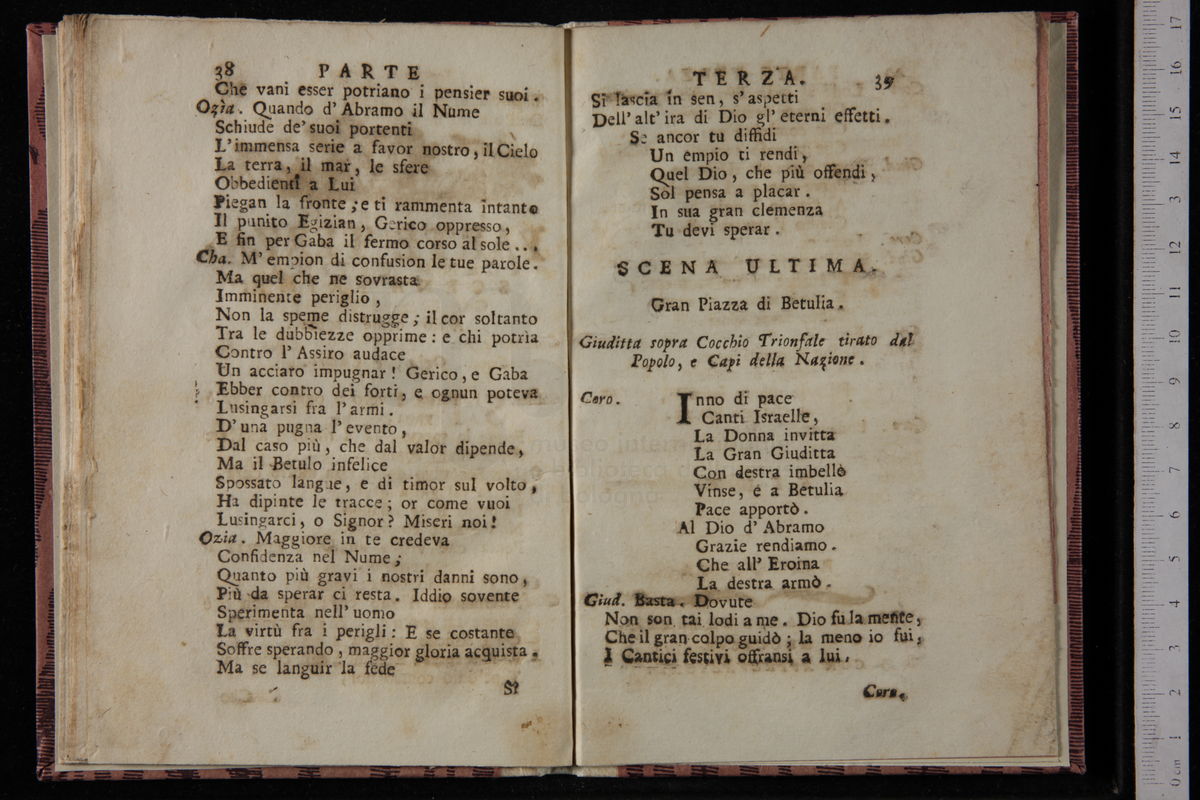 38 PARTE
Che vani esser potriano i pensier suoi.
Ozìa. Quando d' Abramo il Nume
Schiude de' suoi portenti
L'immensa serie a favor nostro, il Cielo
La terra, il mar, le sfere
Obbedienti a Lui
Piegan la fronte; e ti rammenta intanto
Il punito Egizian, Gerico oppresso,
E fin per Gaba il fermo corso al sole...
Cha. M' empion di confusion le tue parole.
Ma quel che ne sovrasta
Imminente periglio,
Non la speme distrugge; il cor soltanto
Tra le dubbiezze opprime: e chi potria
Contro l' Assiro audace
Un acciaro impugnar! Gerico, e Gaba
Ebber contro dei forti, e ognun poteva
Lusingarsi fra l' armi.
D' una pugna l' evento,
Dal caso più, che dal valor dipende,
Ma il Betulo infelice
Spossato langue, e di timor sul volto,
Ha dipinte le tracce; or come vuoi
Lusingarci, o Signor? Miseri noi!
Ozia. Maggiore in te credeva
Confidenza nel Nume;
Quanto più gravi i nostri danni sono,
Più da sperar ci resta. Iddio sovente
Sperimenta nell' uomo
La virtù fra i perigli: E se costante
Soffre sperando, maggior gloria acquista.
Ma se languir la fede
Si
TERZA. 39
Si lascia in sen, s' aspetti
Dell' alt' ira di Dio gl' eterni effetti.
Se ancor tu diffidi
Un empio ti rendi,
Quel Dio, che più offendi,
Sol pensa a placar.
In sua gran clemenza
Tu devi sperar.
SCENA ULTIMA.
Gran Piazza di Betulia.
Giuditta sopra Cocchio Trionfale tirato dal
Popolo, e Capi della Nazione.
Coro. Inno di pace
Canti Israelle,
La Donna invitta
La Gran Giuditta
Con destra imbellè
Vinse, e a Betulia
Pace apportò.
Al Dio d' Abramo
Grazie rendiamo.
Che all' Eroina
La destra armò.
Giud. Basta. Dovute
Non son tai lodi a me. Dio fu la mente,
Che il gran colpo guidò; la meno io fui,
I Cantici festivi offransi a lui.
Coro.